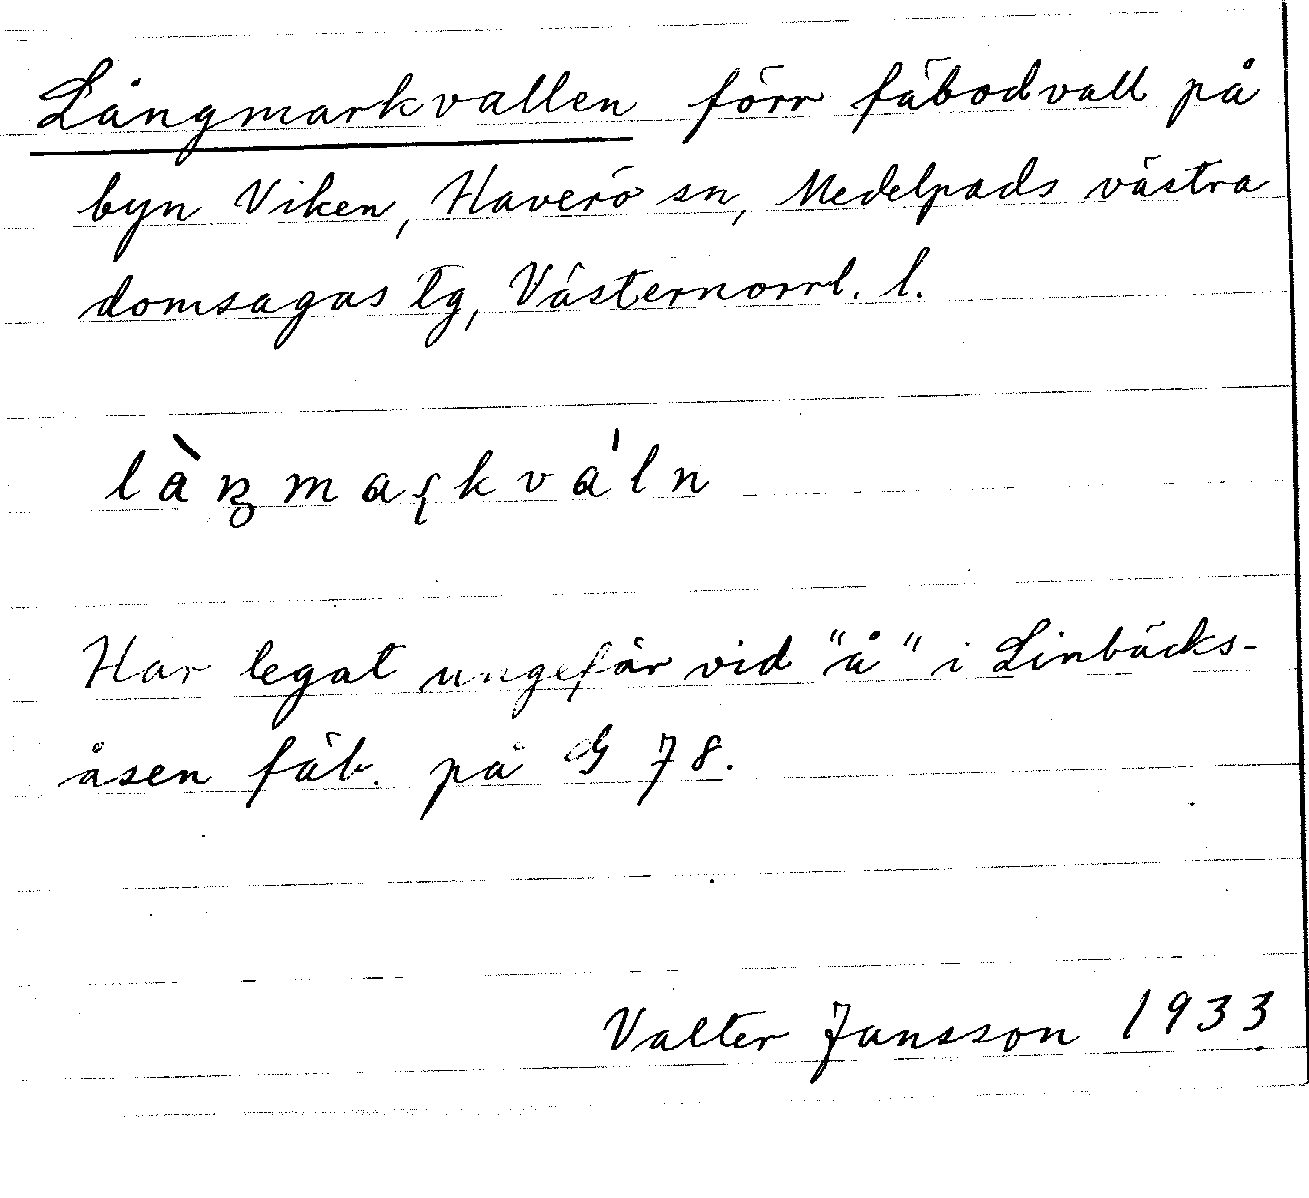 Långmarkvallen förr fäbodvall på
byn Viken, Haverö sn, Medelpads västra
domsagas tg, Västernorrl. l.
làŋmaꞧkváln
Har legat ungefär vid "å" i Linbäcks-
åsen fäb. på G 78.
Valter Jansson 1933